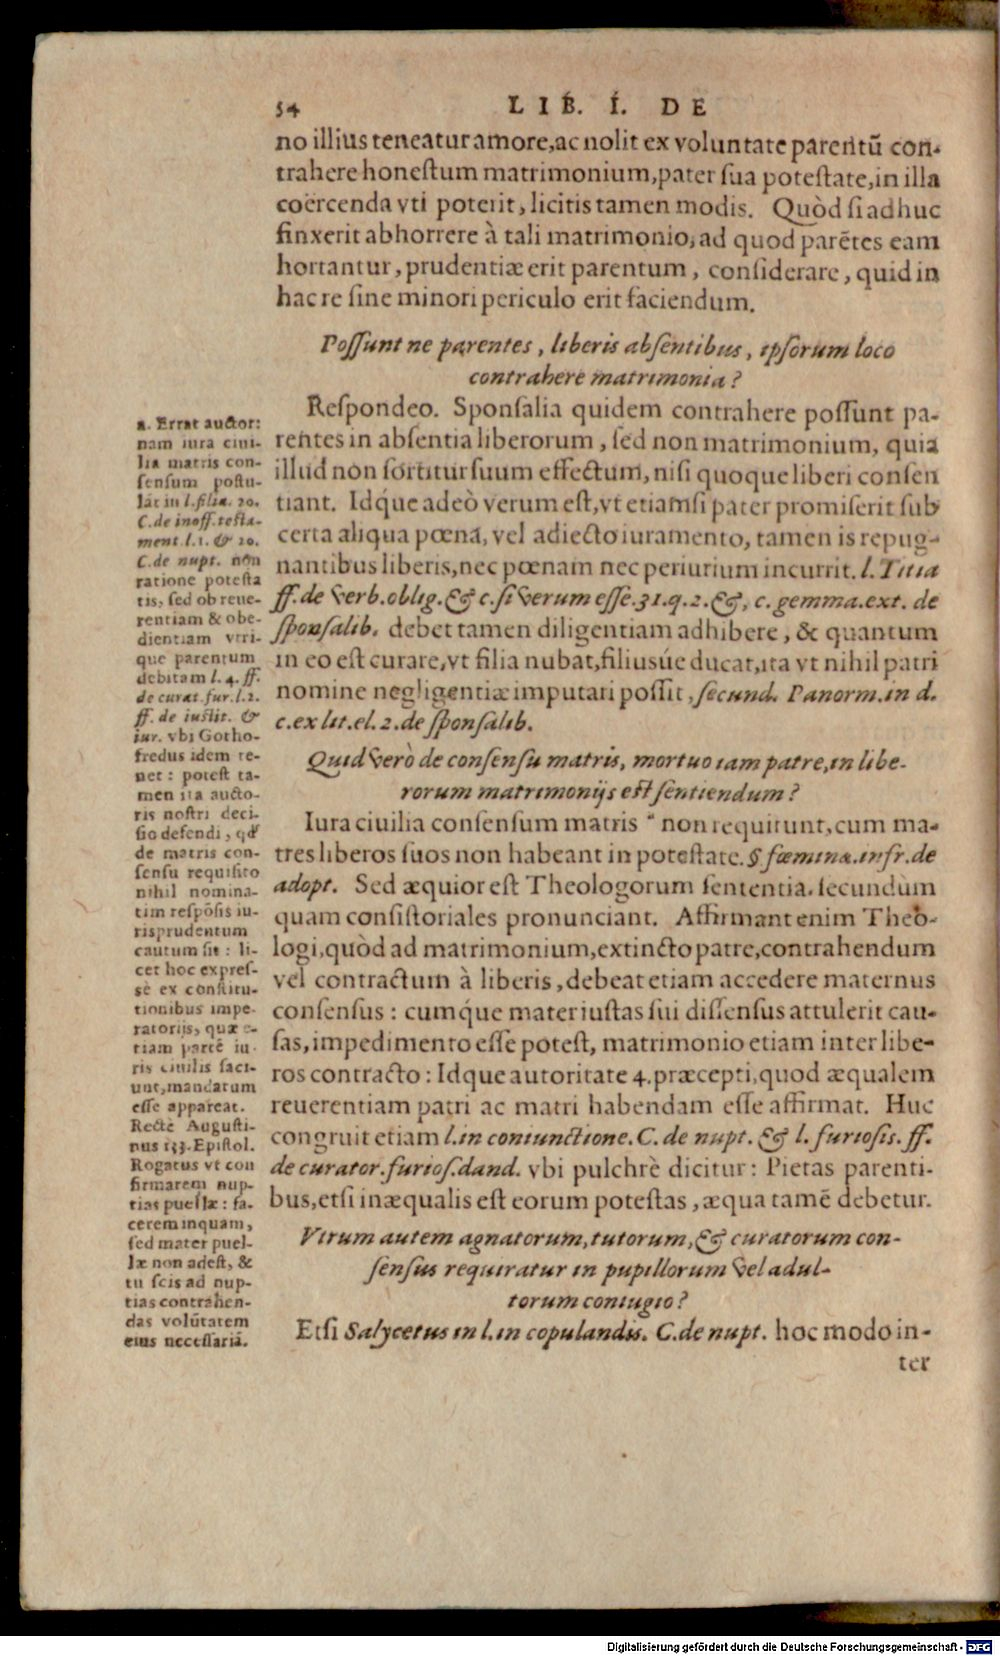 54 LIB. I. DE
no illius teneatur amore, ac nolit ex voluntate parentũ con-
trahere honeſtum matrimonium, pater ſua poteſtate, in illa
coërcenda vti poterit, licitis tamen modis. Quòd ſi adhuc
finxerit abhorrere à tali matrimonio, ad quod parẽtes eam
hortantur, prudentiæ erit parentum, conſiderare, quid in
hac re ſine minori periculo erit faciendum.
Poſſunt ne parentes, liberis abſentibus, ipſorum loco
contrahere matrimonia?
Reſpondeo. Sponſalia quidem contrahere poſſunt pa-
rentes in abſentia liberorum, ſed non matrimonium, quia
illud non ſortitur ſuum effectum, niſi quoque liberi conſen
tiant. Idq́ue adeò verum eſt, vt etiamſi pater promiſerit ſub
certa aliqua pœna, vel adiecto iuramento, tamen is repug-
nantibus liberis, nec pœnam nec periurium incurrit. l. Titia
ff. de verb. oblig. & c. ſi verum eſſe. 31. q. 2. &, c. gemma. ext. de
ſponſalib. debet tamen diligentiam adhibere, & quantum
in eo eſt curare, vt filia nubat, filiusúe ducat, ita vt nihil patri
nomine negligentiæ imputari poſſit, ſecund. Panorm. in d.
c. ex lit. el. 2. de ſponſalib.
Quid verò de conſenſu matris, mortuo iam patre, in libe-
rorum matrimonijs eſt ſentiendum?
Iura ciuilia conſenſum matris a non requirunt, cum ma-
tres liberos ſuos non habeant in poteſtate. § fœmina. infr. de
adopt. Sed æquior eſt Theologorum ſententia. ſecundùm
quam conſiſtoriales pronunciant. Affirmant enim Theo-
logi, quòd ad matrimonium, extincto patre, contrahendum
vel contractum à liberis, debeat etiam accedere maternus
conſenſus: cumq́ue mater iuſtas ſui diſſenſus attulerit cau-
ſas, impedimento eſſe poteſt, matrimonio etiam inter libe-
ros contracto: Idque autoritate 4. præcepti, quod æqualem
reuerentiam patri ac matri habendam eſſe affirmat. Huc
congruit etiam l. in coniunctione. C. de nupt. & l. furioſis. ff.
de curator. furioſ. dand. vbi pulchrè dicitur: Pietas parenti-
bus, etſi inæqualis eſt eorum poteſtas, æqua tamẽ debetur.
Vtrum autem agnatorum, tutorum, & curatorum con-
ſenſus requiratur in pupillorum vel adul-
torum coniugio?
Etſi Salycetus in l. in copulandis. C. de nupt. hoc modo in-
ter
a. Errat auctor:
nam iura ciui-
lia matris con-
ſenſum poſtu-
lãt in l. filia. 20.
C. de inoff. teſta-
ment. l. 1. & 20.
C. de nupt. non
ratione poteſta
tis, ſed ob reue-
rentiam & obe-
dientiam vtri-
que parentum
debitam l. 4. ff.
de curat. fur. l. 2.
ff. de iuſtit. &
iur. vbi Gotho-
fredus idem te-
net: poteſt ta-
men ita aucto-
ris noſtri deci-
ſio defendi, qđ
de matris con-
ſenſu requiſito
nihil nomina-
tim reſpõſis iu-
riſprudentum
cautum ſit: li-
cet hoc expreſ-
sè ex conſtitu-
tionibus impe-
ratorijs, quæ e-
tiam partẽ iu-
ris ciuilis faci-
unt, mandatum
eſſe appareat.
Rectè Auguſti-
nus 133. Epiſtol.
Rogatus vt con
firmarem nup-
tias puellæ: fa-
cerem inquam,
ſed mater puel-
læ non adeſt, &
tu ſcis ad nup-
tias contrahen-
das volũtatem
eius neceſſariã.
Digitalisierung gefördert durch die Deutsche Forschungsgemeinschaft - DFG